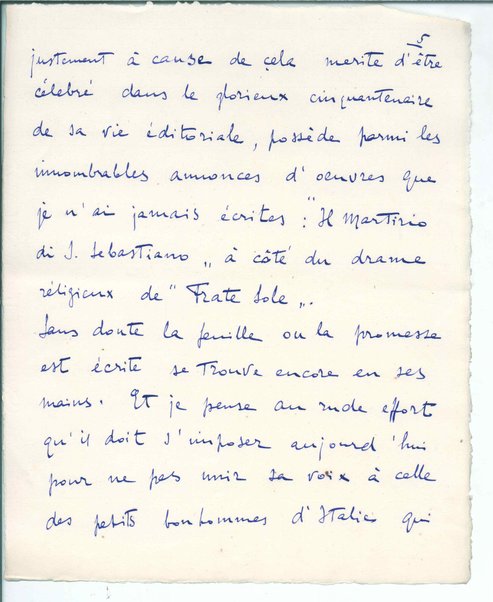 5
justement à cause de çela merite d'être
célebré dans le glorieux cinquantenaire
de sa vie éditoriale, possède parmi les
innombrables annonces d'oeuvres que
je n'ai jamais écrites : "Il Martirio
di S. Sebastiano„ à côté du drame
réligieux de "Frate Sole„.
Sans doute la feuille ou la promesse
est écrite se trouve encore en ses
mains. Et je pense au rude effort
qu'il doit s'imposer aujourd'hui
pour ne pas unir sa voix à celle
des petits bonhommes d'Italie qui